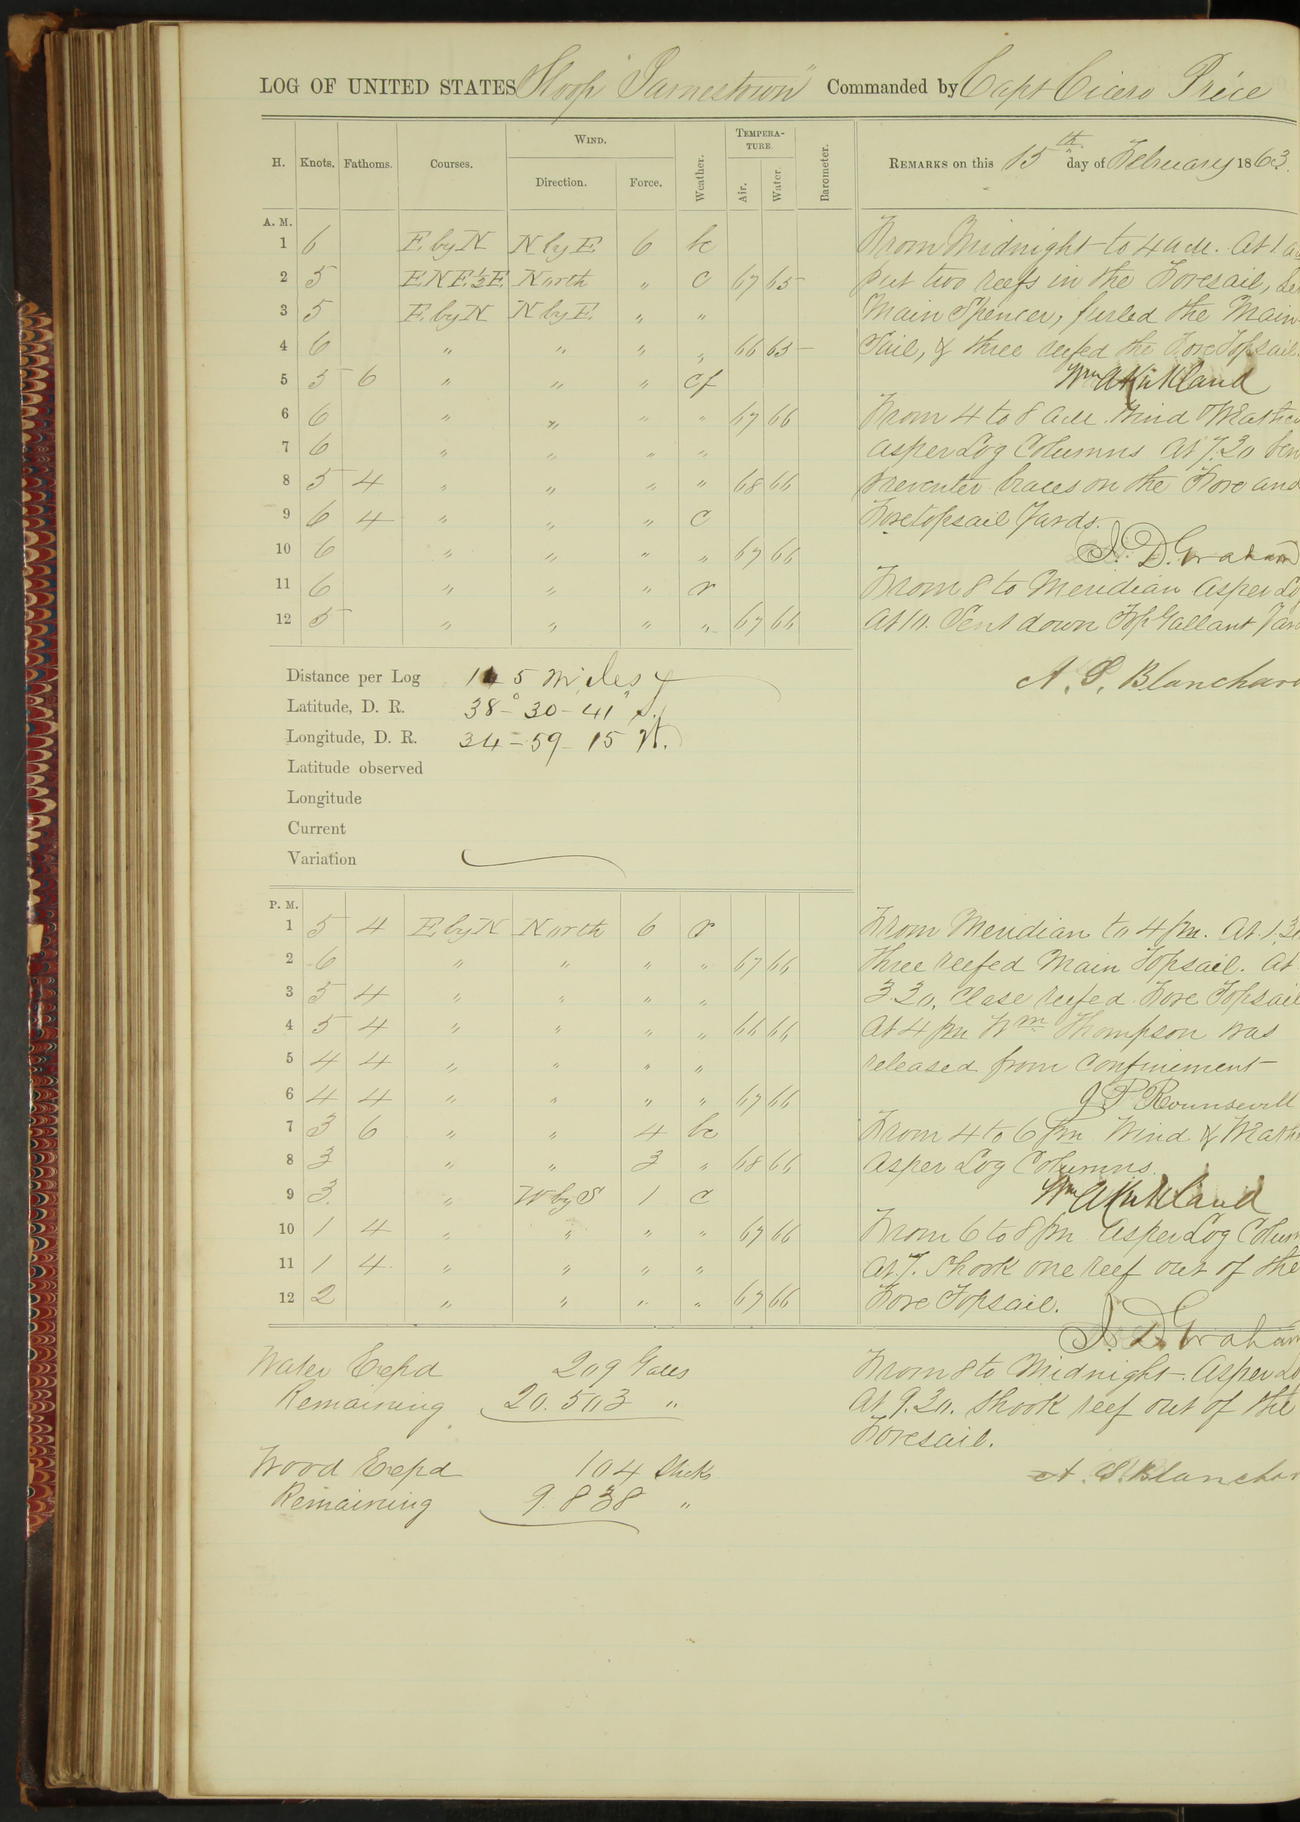 LOG OF UNITED STATES Sloop "Jamestown" Commanded by Capt Cicero Price
H. Knots. Fathoms. Courses. Wind. Direction. Force. Weather. Tempera-ture. Air. Water. Barometer. Remarks on this 15th day of February 1863.
A. M.
1 6 E by N N by E 6 bc
2 5 ENE ½ E North " c 67 65
3 5 E by N N by E " "
4 6 " " " " 66 65
5 5 6 " " " cf
6 6 " " " " 67 66
7 6 " " " "
8 5 4 " " " " 68 66
9 6 4 " " " c
10 6 " " " " 67 66
11 6 " " " r
12 5 " " " " 67 66
From Midnight to 4 a.m. At 1
put two reefs in the Foresail,
Main Spencer, furled the Main
Sail, & three reefed the Fore Topsail.
Wm A Kirkland
From 4 to 8 a.m. Wind & Weather
as per Log Columns At 7.30
preventer braces on the Fore and
Foretopsail Yards.
J. D. Graham
From 8 to Meridian as per
At 10. Sent down Top Gallant
A. S. Blanchard
Distance per Log 145 Miles
Latitude, D. R. 38° - 30 - 41" S.
Longitude, D. R. 34 - 59 - 15 W.
Latitude observed
Longitude
Current
Variation
P. M.
1 5 4 E by N North 6 r
2 6 " " " " 67 66
3 5 4 " " " "
4 5 4 " " " " 66 66
5 4 4 " " " "
6 4 4 " " " " 67 66
7 3 6 " " 4 bc
8 3 " " 3 " 68 66
9 3 " W by S 1 c
10 1 4 " " " " 67 66
11 1 4 " " " "
12 2 " " " " 67 66
From Meridian to 4 pm. At 1.30
three reefed Main Topsail. At
3.30, Close reefed Fore Topsail
At 4 pm Wm Thompson was
released from confinement
J P Rounsevill
From 4 to 6 pm Wind &
as per Log Columns.
Wm A Kirkland
From 6 to 8 pm as per Log
At 7. Shook one reef out of the
Fore Topsail.
J. D. Graham
From 8 to Midnight. as per
At 9.30. Shook reef out of the
Foresail.
A. S. Blanchar
Water Expd 209 Galls
Remaining 20.503 "
Wood Expd 104 Sticks
Remaining 9.838 "